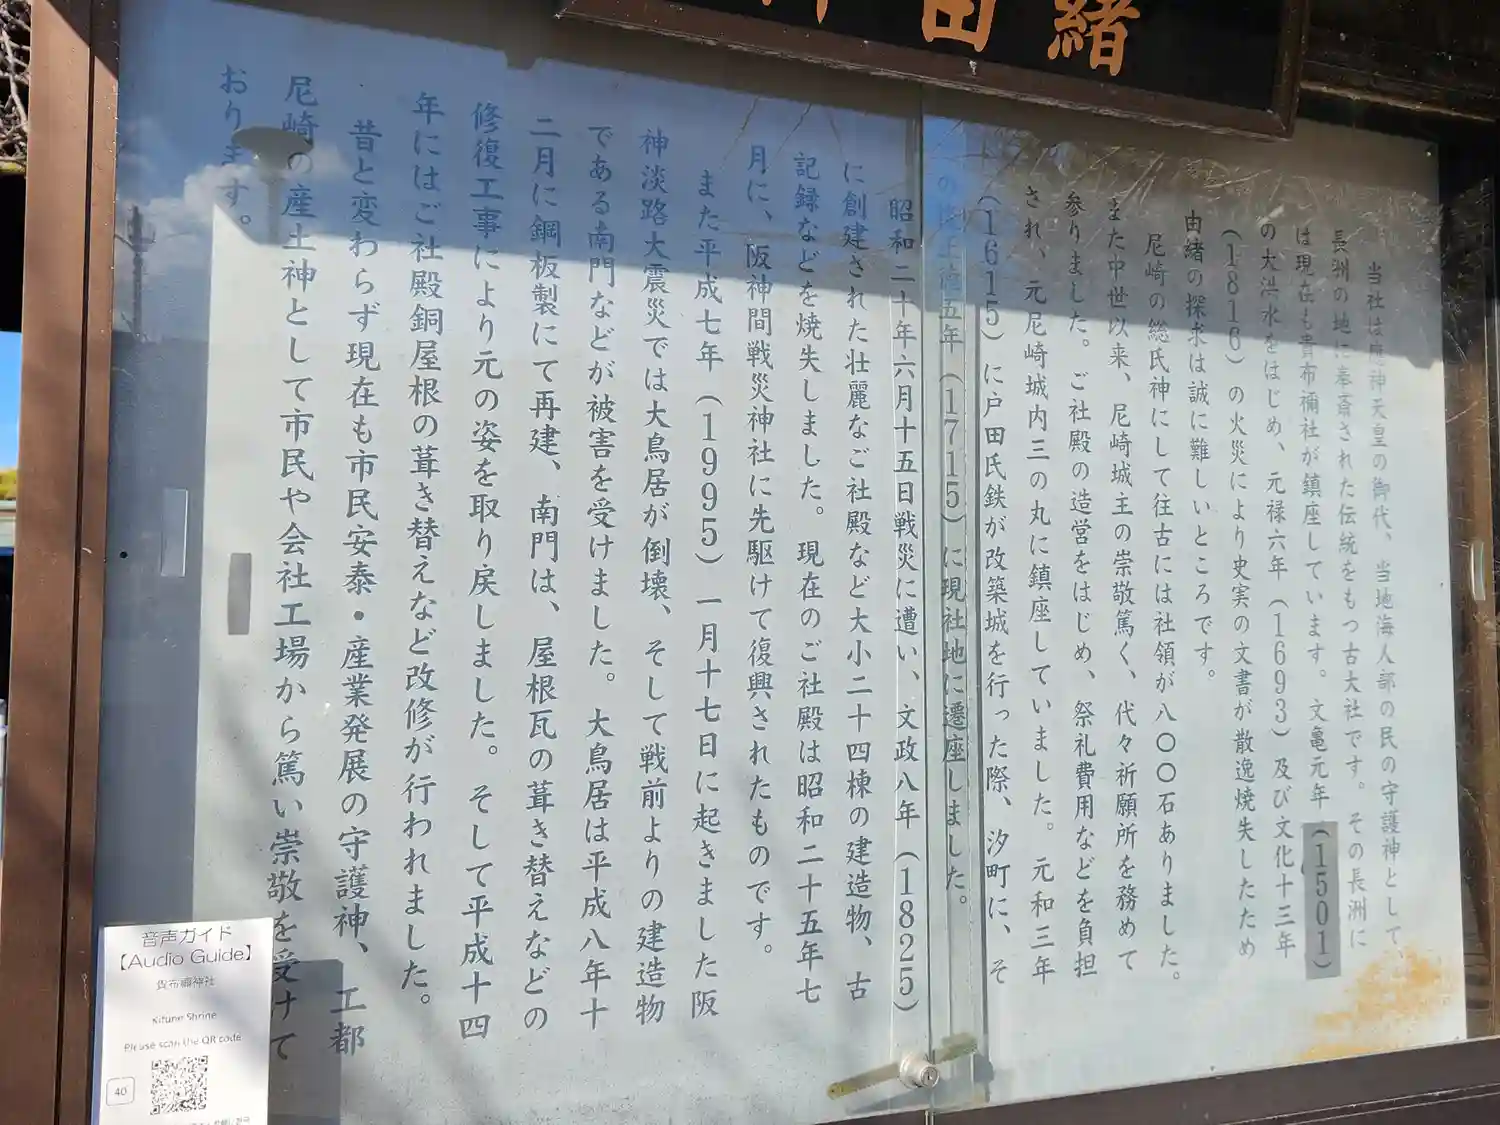 由緒
当社は應神天皇の御代、当地海人部の民の守護神として、
長洲の地に奉斎された伝統をもつ古大社です。その長洲に
は現在も貴布禰社が鎮座しています。文亀元年(1501)
の大洪水をはじめ、元禄六年(1693)及び文化十三年
(1816)の火災により史実の文書が散逸焼失したため
由緒の探求は誠に難しいところです。
尼崎の総氏神にして往古には社領が八〇〇石ありました。
また中世以来、尼崎城主の崇敬篤く、代々祈願所を務めて
参りました。ご社殿の造営をはじめ、祭礼費用などを負担
され、元尼崎城内三の丸に鎮座していました。元和三年
(1615)に戸田氏鉄が改築城を行った際、汐町に、そ
の後正徳五年(1715)に現社地に遷座しました。
昭和二十年六月十五日戦災に遭い、文政八年(1825)
に創建された壮麗なご社殿など大小二十四棟の建造物、古
記録などを焼失しました。現在のご社殿は昭和二十五年七
月に、阪神間戦災神社に先駆けて復興されたものです。
また平成七年(1995)一月十七日に起きました阪
神淡路大震災では大鳥居が倒壊、そして戦前よりの建造物
である南門などが被害を受けました。大鳥居は平成八年十
二月に鋼板製にて再建、南門は、屋根瓦の葺き替えなどの
修復工事により元の姿を取り戻しました。そして平成十四
年にはご社殿銅屋根の葺き替えなど改修が行われました。
昔と変わらず現在も市民安泰・産業発展の守護神、工都
尼崎の産土神として市民や会社工場から篤い崇敬を受けて
おります。
音声ガイド
【Audio Guide】
貴布禰神社
Kifune Shrine
Please scan the QR code
40